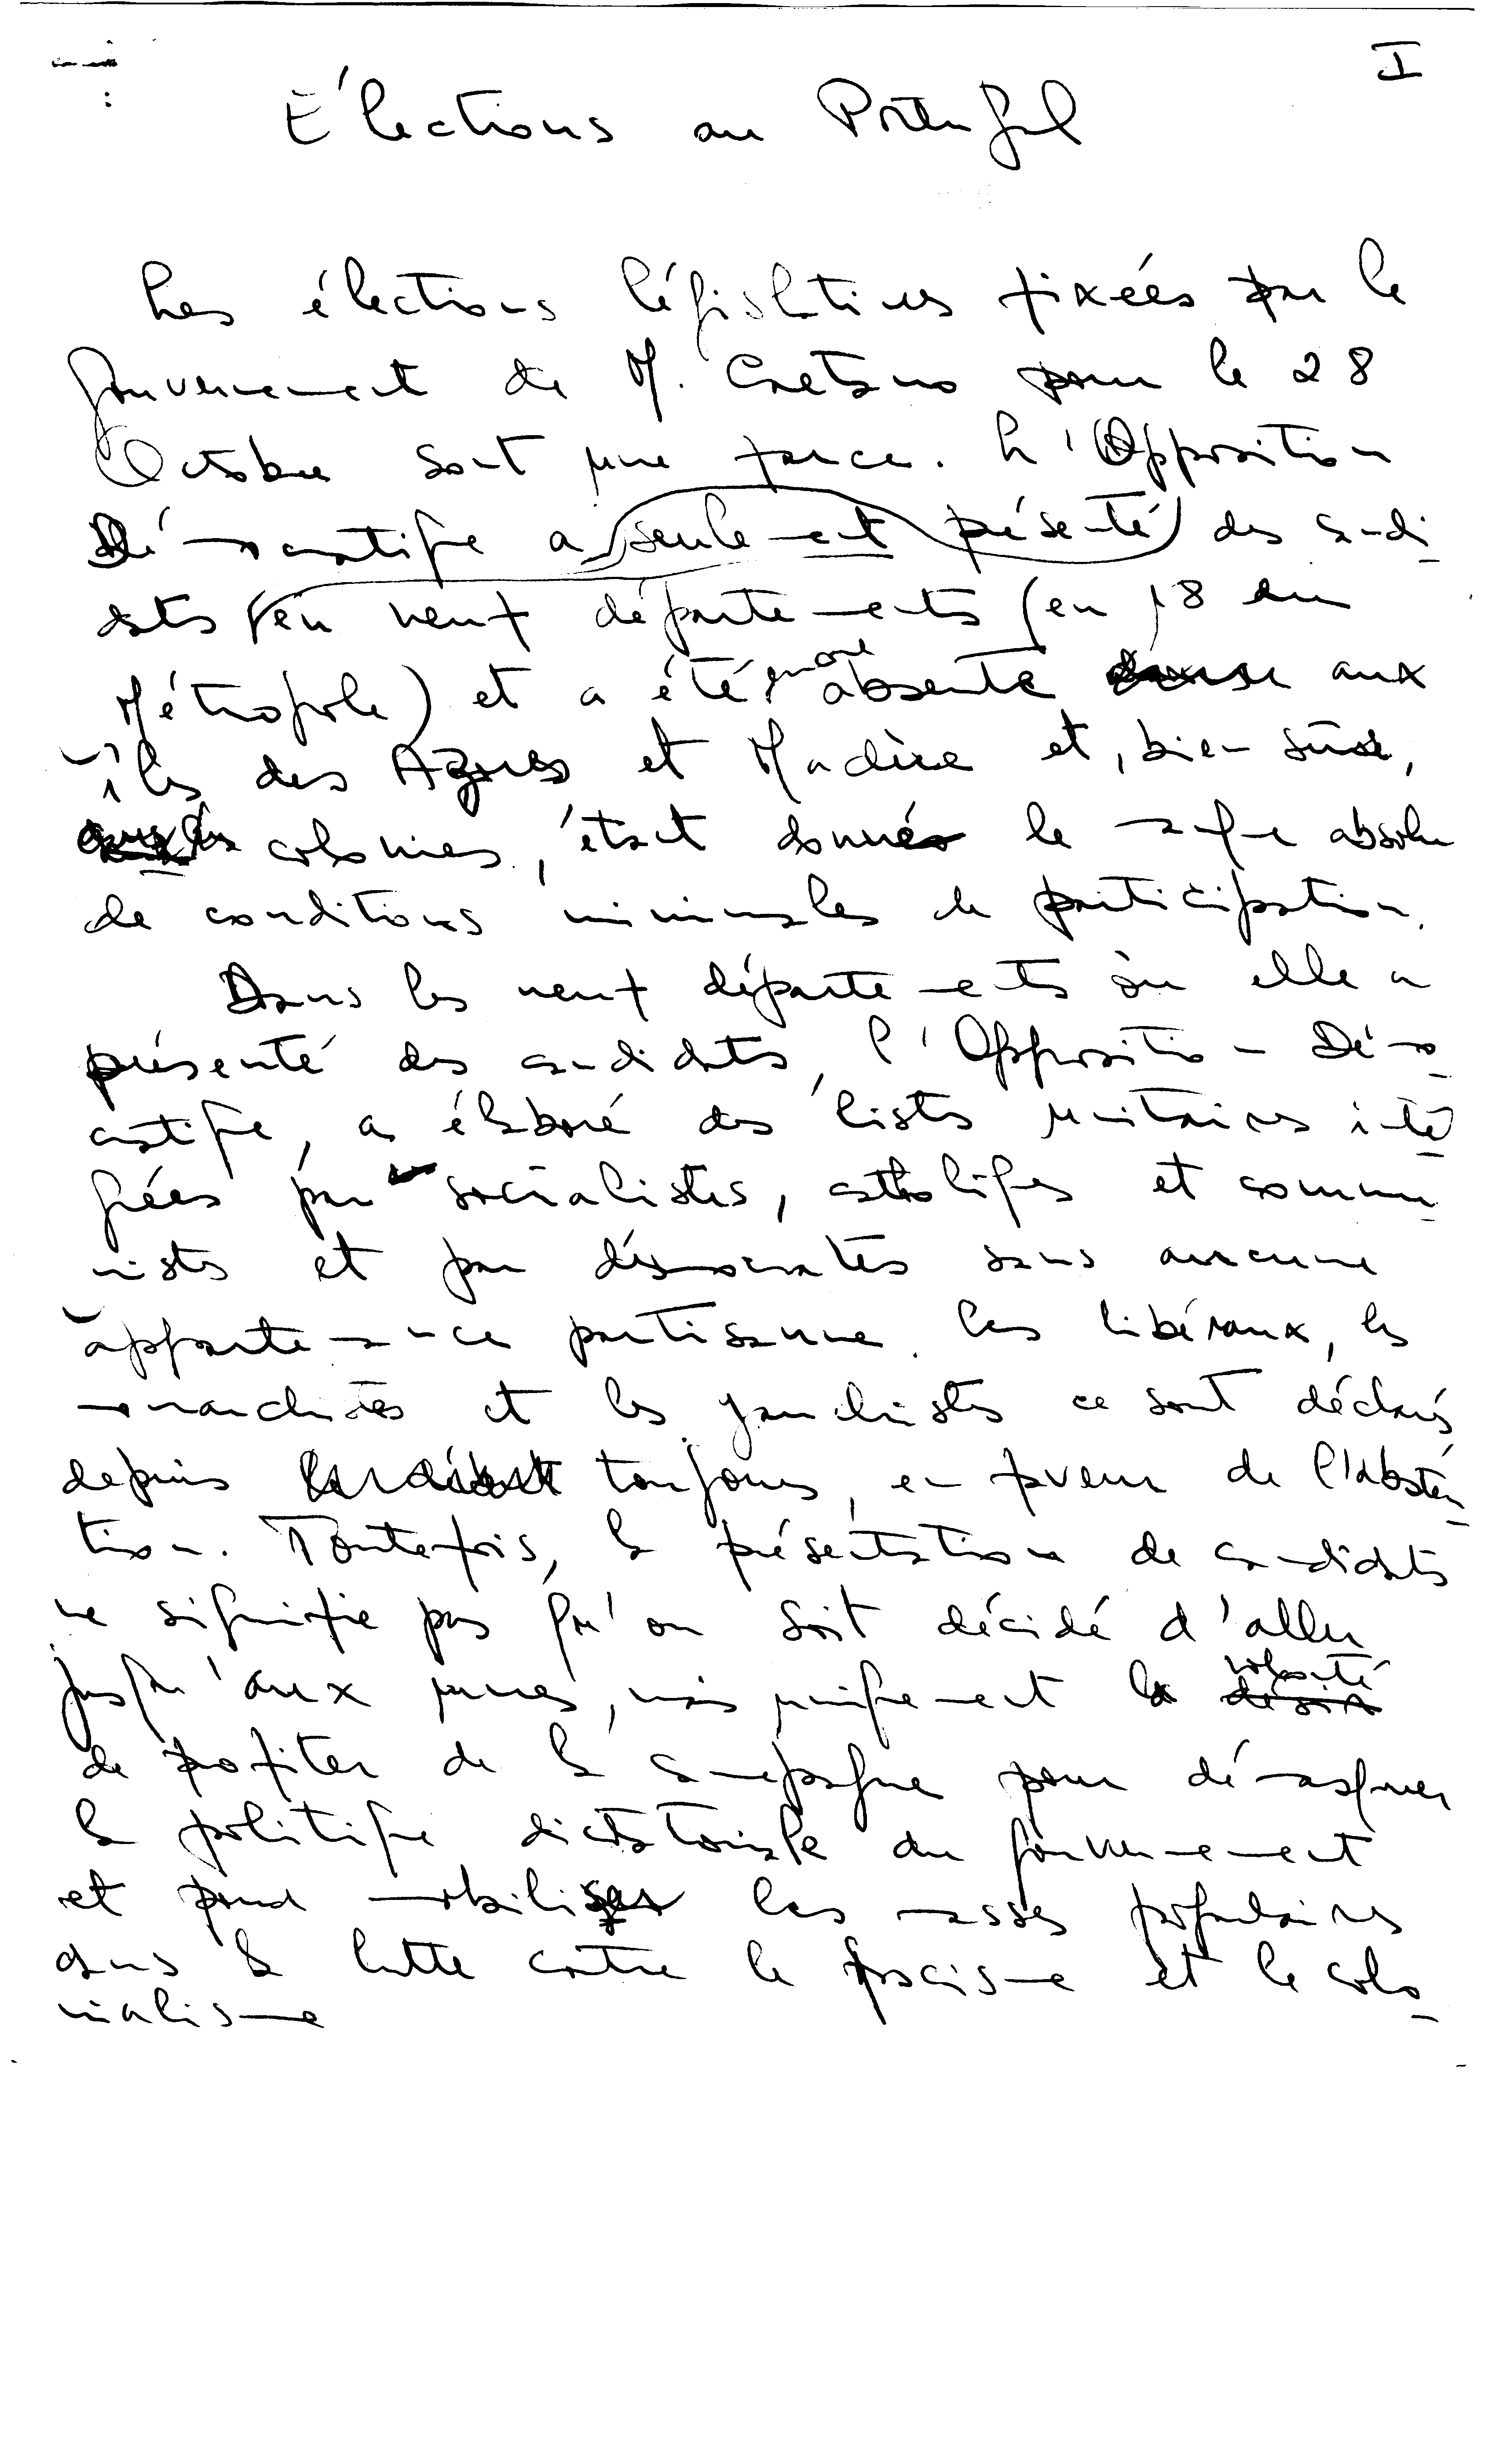 I
Élections au Portugal
Les élections législatives fixées par le
gouvernement de M. Caetano pour le 28
Octobre sont une farce. L'Opposition
Démocratique a seulement présenté des candi-
dats en neuf départements (en 18 du
Métropole) et a été absente aux
îles des Açores et Madère et, bien sûre,
aux colonies, étant donné le manque absolu
de conditions minimales de participation.
Dans les neuf départements où elle a
présenté des candidats, l'Opposition Démo-
cratique, a élaboré des listes unitaires inté-
grées par socialistes, catholiques et commu-
nistes et par démocrates sans aucune
appartenance partisanne. Les libéraux, les
monarchistes et les gauchistes ce sont déclarés
depuis toujours, en faveur de l'absten-
tion. Toutefois, la présentation de candidats
ne signifie pas qu'on soit décidé d'aller
jusqu'aux urnes, mais uniquement la volonté
de profiter de la campagne pour démasquer
la politique dictatoriale du gouvernement
et pour mobiliser les masses populaires
dans la lutte contre le fascisme et le colo-
nialisme